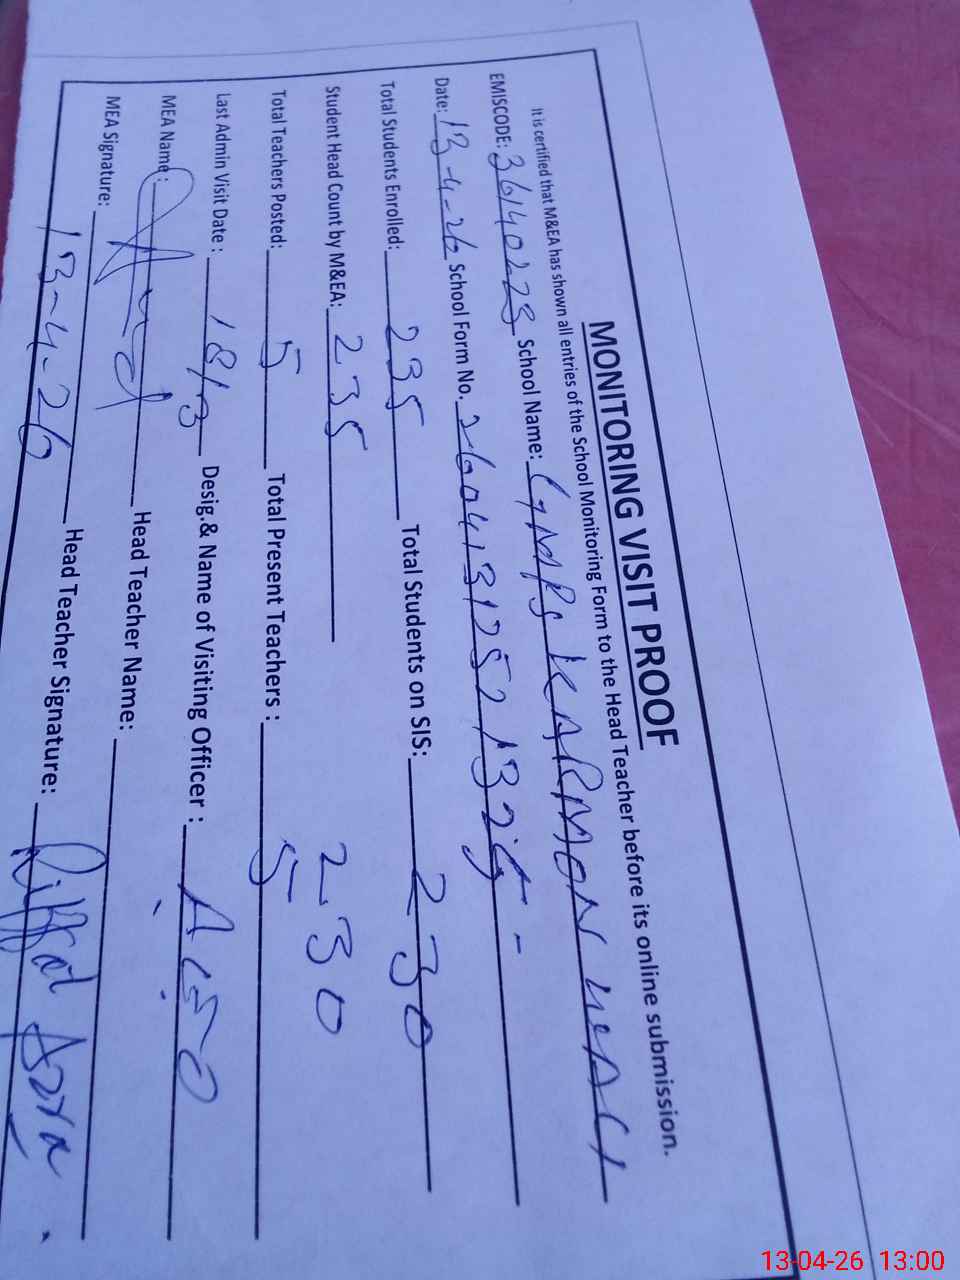 MONITORING VISIT PROOF
It is certified that M&EA has shown all entries of the School Monitoring Form to the Head Teacher before its online submission.
EMISCODE: 36140228 School Name: GMPS KARMON
Date: 13-4-26 School Form No. 
Total Students Enrolled: 235 Total Students on SIS: 230
Student Head Count by M&EA: 235 230
Total Teachers Posted: 5 Total Present Teachers : 5
Last Admin Visit Date : 18/3 Desig.& Name of Visiting Officer : AEO
MEA Name : Head Teacher Name:
MEA Signature: 13-4-26 Head Teacher Signature: Riffat Azra
13-04-26 13:00